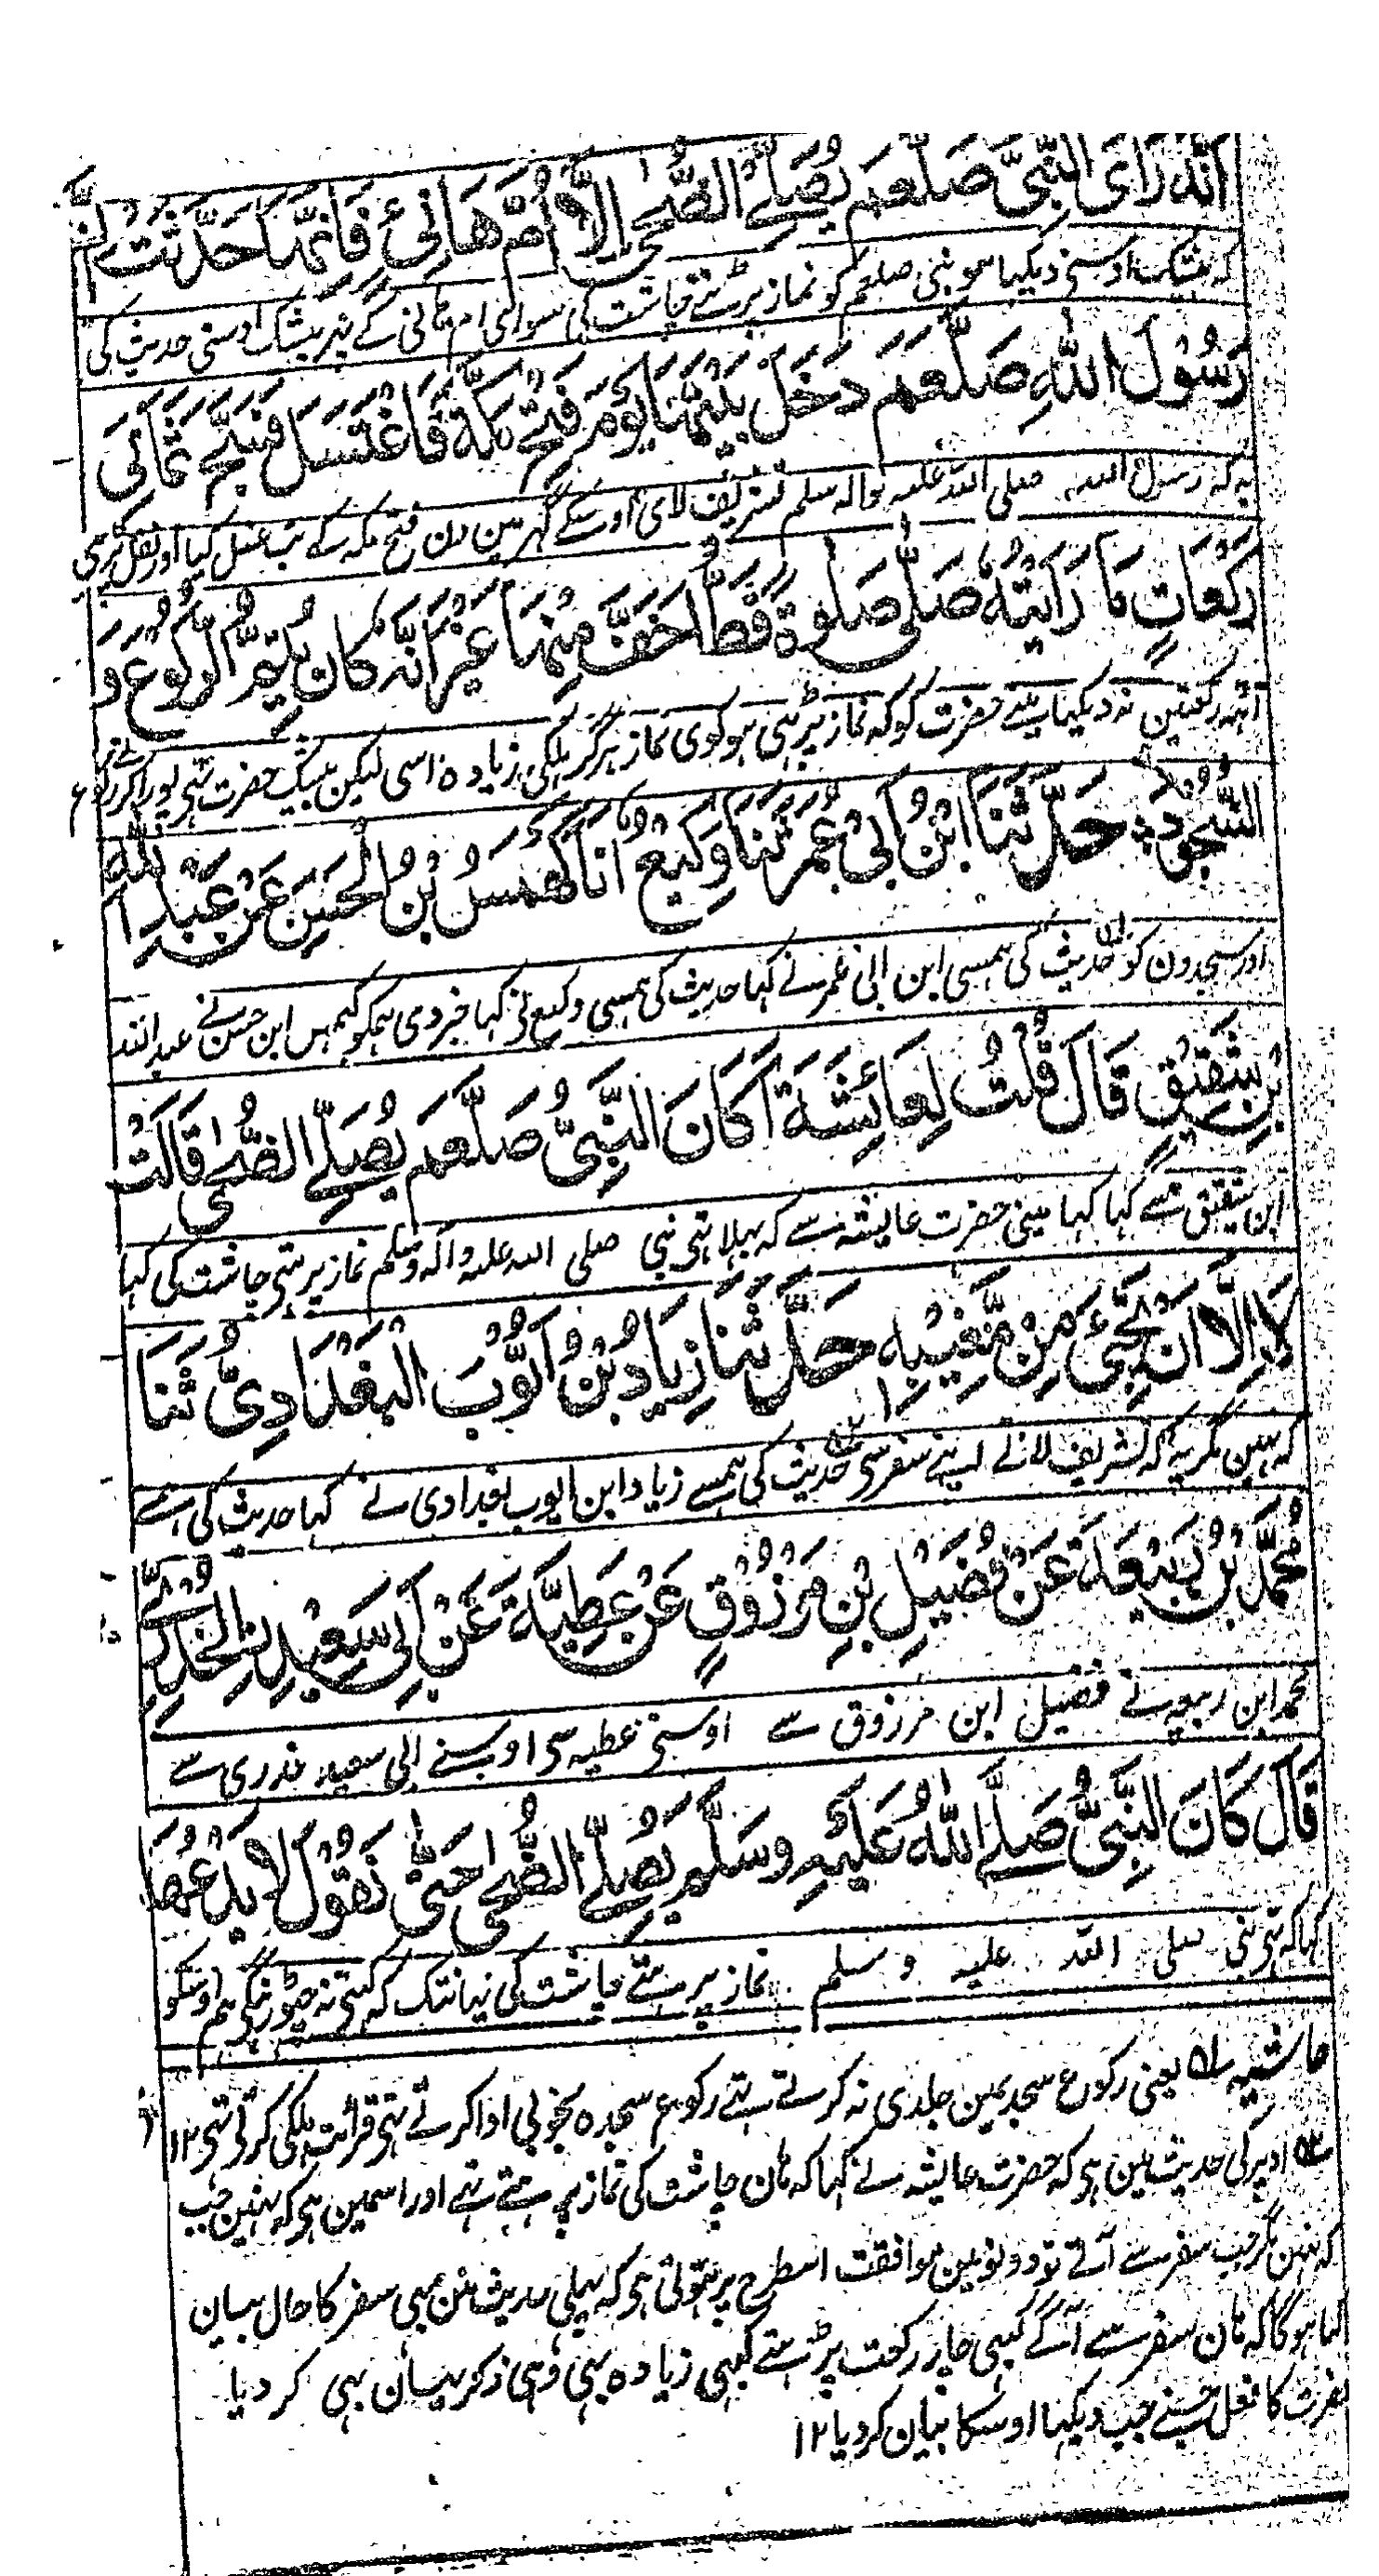 انه رأى النبي صلعم يصلے الضحى الا ام هانئ فانها حدثت ان
که بیشک اوسنی دیکہا ہو نبی صلعم کو نماز پرٹہتے چاشت کی سوا لی ام ہانی کے پس بیشک اوسنی حدیث کی
رَسُوْلَ اللهِ صلعم دَخَلَ بَيْتَهَا يَوْمَ فَتْحِ مَكَّةَ فَاغْتَسَلَ فَسَبَّحَ ثَمَانِيَ
یہ کہ رسول اللہ صلی اللہ علیہ وآلہ سلم تشریف لای اوسکے گہر مین دن فتح مکہ کے تب غسل کیا اور نفل پڑہی
رَكَعَاتٍ مَا رَأَيْتُهُ صَلَّى صَلٰوةً قَطُّ اَخَفَّ مِنْهَا غَيْرَ اَنَّهُ كَانَ يُتِمُّ الرُّكُوْعَ وَ
آٹہہ رکعتین نہ دیکہا مینے حضرت کو کہ نماز پڑہی ہو کوی نماز ہرگز ہلکی زیادہ اسی لیکن بیشک حضرت تہی پورا کرتے رکوع
السُّجُوْدَ حَدَّثَنَا ابْنُ اَبِيْ عُمَرَ ثَنَا وَكِيْعٌ اَنَا كَهْمَسُ بْنُ الْحَسَنِ عَنْ عَبْدِ اللهِ
اور سجدون کو حدیث کی ہمسی ابن ابی عمر نے کہا حدیث کی ہمسی وکیع نی کہا خبر دی ہمکو کہمس ابن حسن نے عبد اللہ
بْنِ شَقِيْقٍ قَالَ قُلْتُ لِعَائِشَةَ اَكَانَ النَّبِيُّ صلعم يُصَلِّے الضُّحٰى قَالَتْ
ابن شقیق سے کہا کہا مینی حضرت عایشہ سے کہ بہلا تہی نبی صلی اللہ علیہ وآلہ وسلم نماز پرہتی چاشت کی کہا
لَا اِلَّا اَنْ يَّجِيْءَ مِنْ مَّغِيْبِهِ حَدَّثَنَا زِيَادُ بْنُ اَيُّوْبَ الْبَغْدَادِيُّ ثَنَا
کہ نہین مگر یہ کہ تشریف لاتے اپنے سفر سی حدیث کی ہمسے زیاد ابن ایوب بغدادی نے کہا حدیث کی ہمسے
مُحَمَّدُ بْنُ رَبِيْعَةَ عَنْ فُضَيْلِ بْنِ مَرْزُوْقٍ عَنْ عَطِيَّةَ عَنْ اَبِيْ سَعِيْدِ نِ الْخُدْرِيِّ
محمد ابن ربیعہ نے فضیل ابن مرزوق سے اوسنی عطیہ سی اوسنے ابی سعید خدری سے
قَالَ كَانَ النَّبِيُّ صَلَّے اللهُ عَلَيْهِ وَسَلَّمَ يُصَلِّے الضُّحٰى حَتّٰى نَقُوْلَ لَا يَدَعُهَا
کہا کہ تہی نبی صلی اللہ علیہ و سلم نماز پرہتے چاشت کی یہانتک کہ کہتی نہ چہوڑینگی ہم اوسکو
حاشیہ ۵۱ یعنی رکوع سجدیمین جلدی نہ کرتے تہے رکوع سجدہ بخوبی ادا کرتے تہی قرائت ہلکی کرتی تہی ۱۲
۵۲ اوپر کی حدیث مین ہی کہ حضرت عایشہ نے کہا کہ ہان چاشت کی نماز پرہتے تہے اور اسمین ہی کہ نہین جب
کہ نہین مگر جب سفر سے آتے تو دونومین موافقت اسطرح پر ہوتی ہی کہ پہلی حدیث مین بہی سفر کا حال بیان
کیا ہوگا کہ ہان سفر سے آکے کبہی چار رکعت پڑہتے کبہی زیادہ بہی وہی ذکر یہان بہی کر دیا
حضرت کا فعل جسنے جب دیکہا اوسکا بیان کر دیا ۱۲